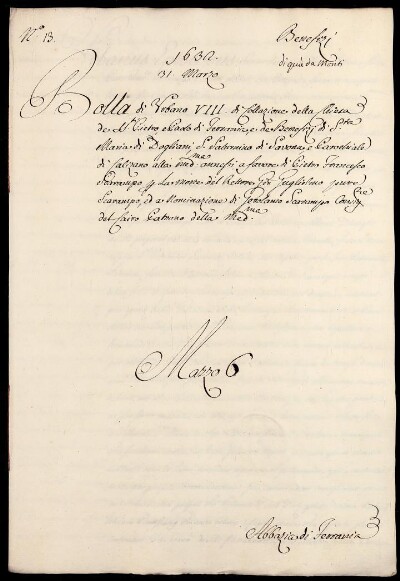 N.º 13.
Beneficj
di quà da Monti
1632.
31 Marzo
Bolla di Urbano VIII. di Collazione della Chiesa
de SS.ti Pietro e Paolo di Ferrania, e de Beneficj di S.ta
Maria di Dogliani, S. Saturnino di Savona, e Parrochiale
di Salizano alla med.ma annessi a favore di Pietro Francesco
Scarampo, p. la morte del Rettore Guglielmo pure
Scarampo, ed a Nominazione di Scarampo
del Laico Patrono della Med.ma
Mazzo 6
Abbazia di Ferrania